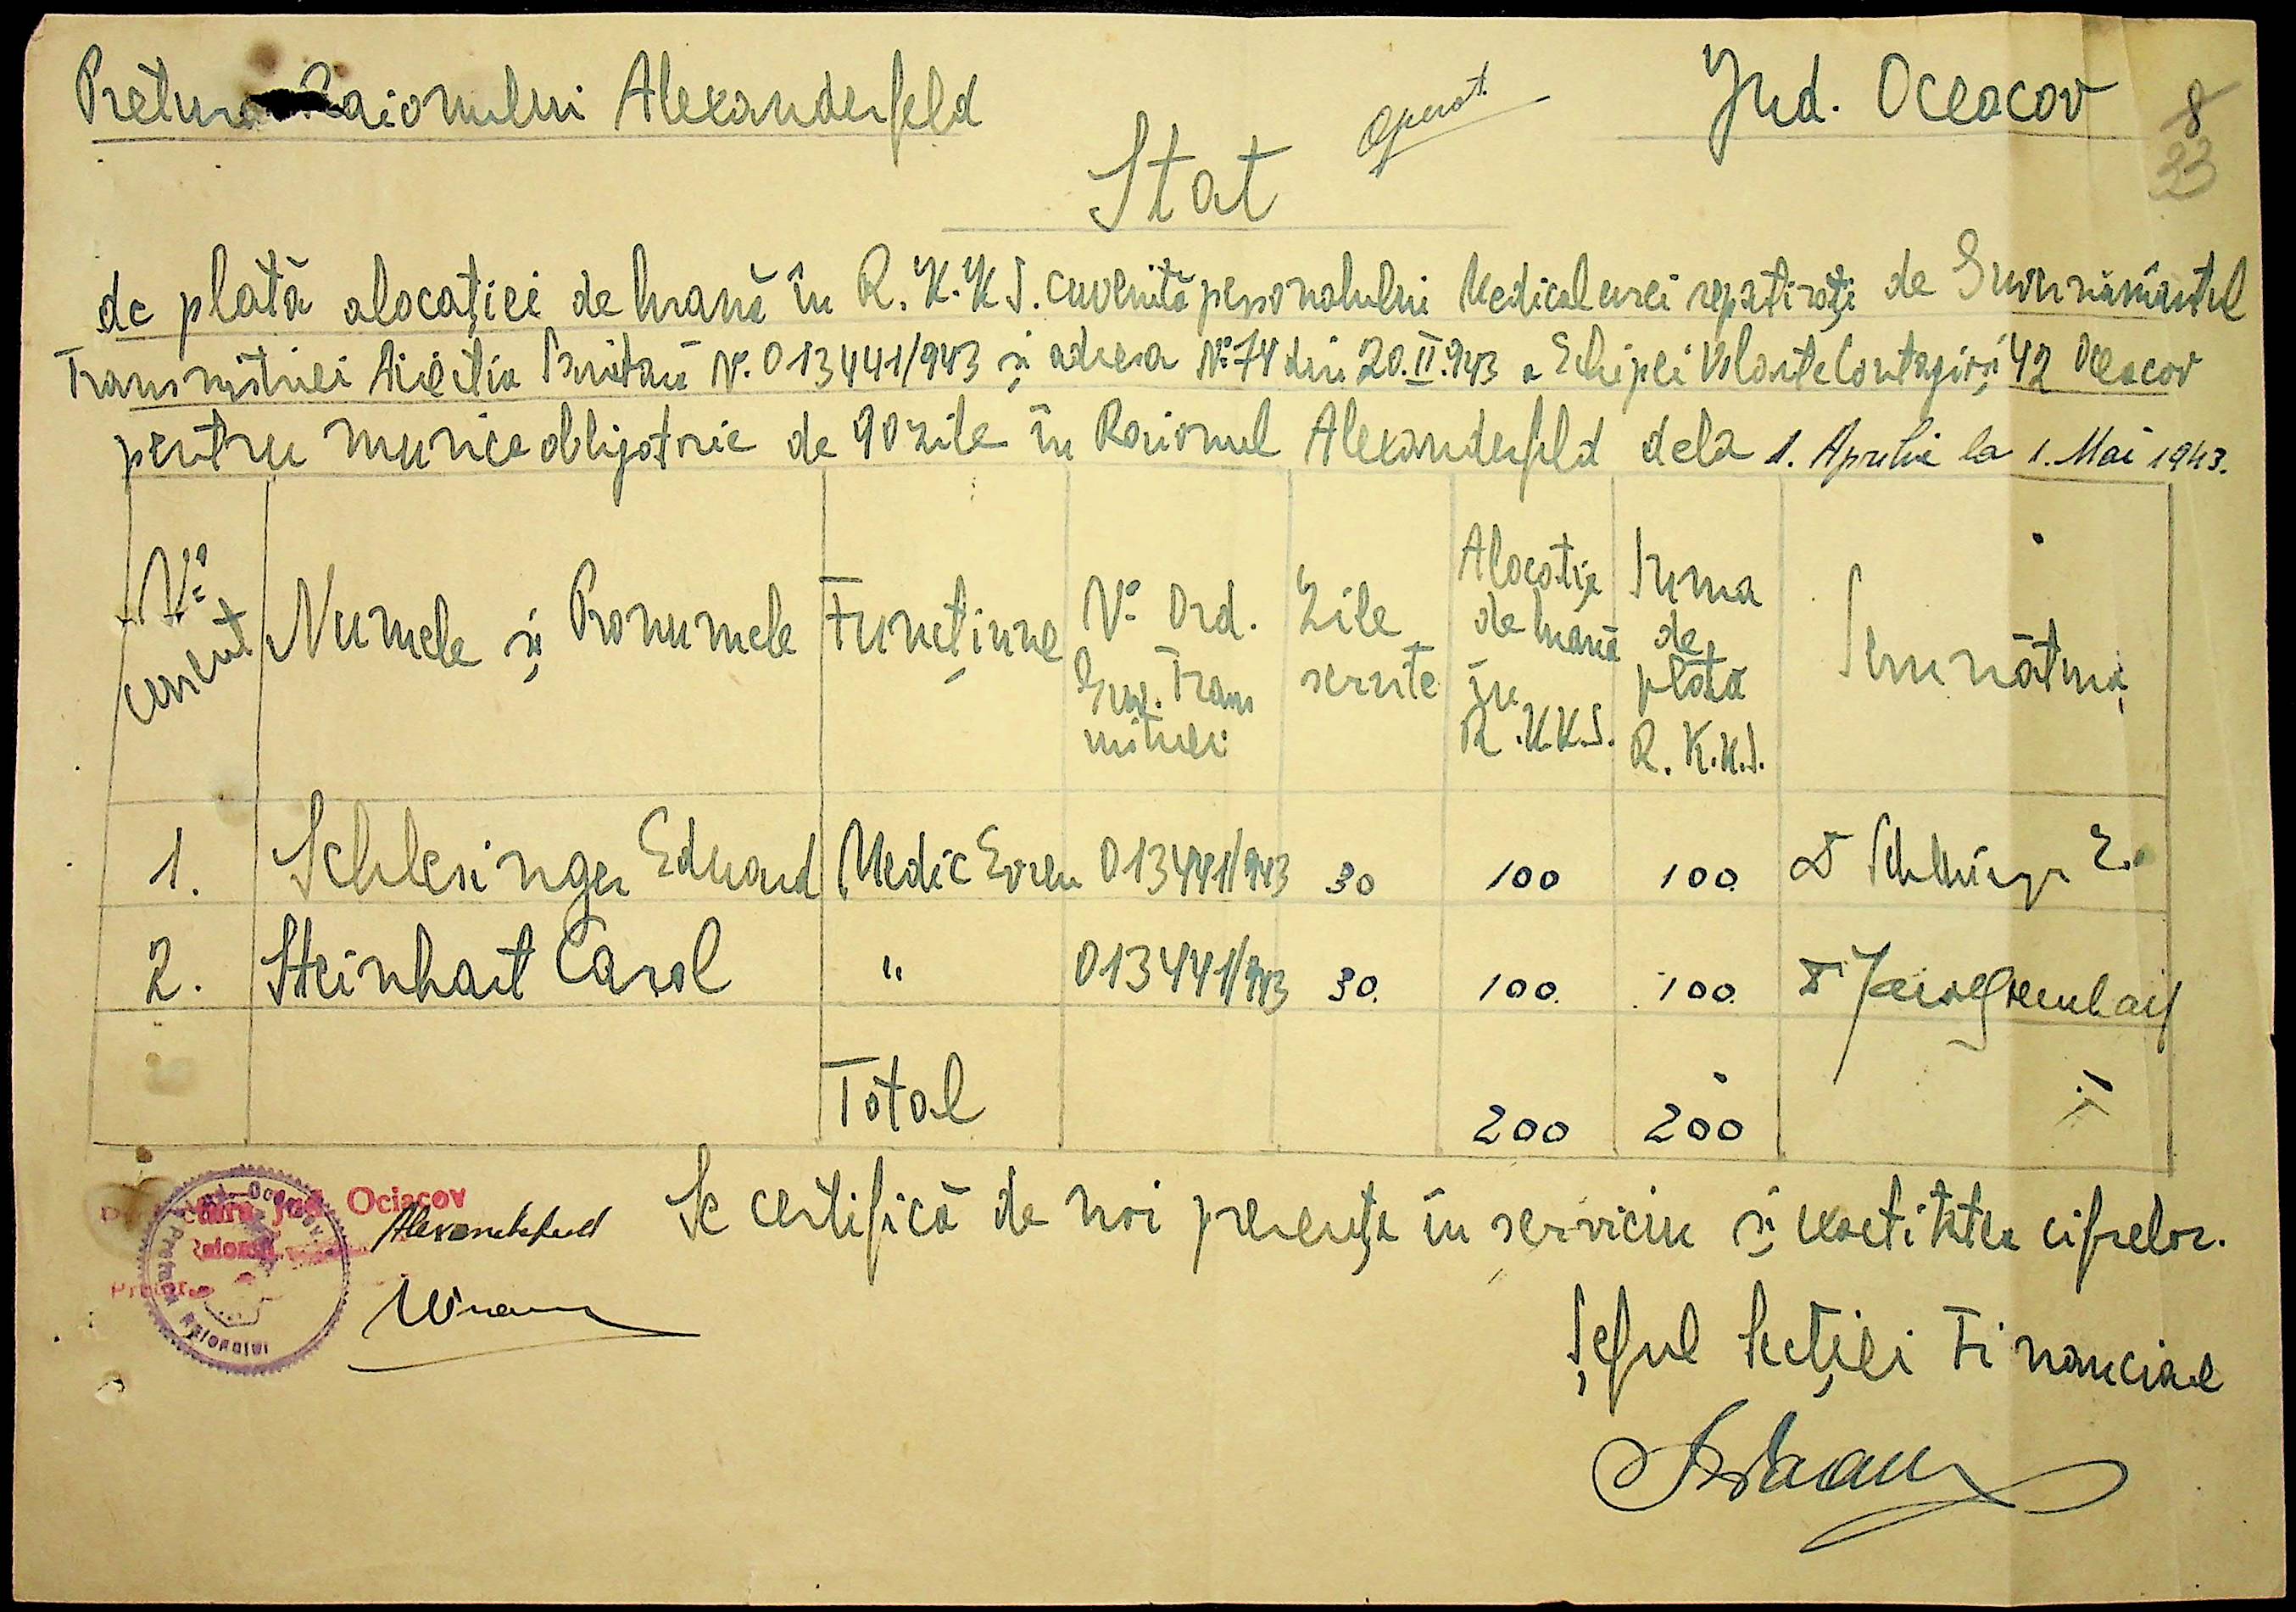 Pretura Raionului Alexanderfeld
Operat
Jud. Oceacov
8
23
Stat
de plată alocației de hrană în R.K.K.S. cuvenită personalului Medical evrei repartizați de Guvernământul
Transnistriei Direcția Sanitară Nº. 013441/943 și adresa Nº 74 din 20.II.943 a Echipei Volante Contagioși 42 Oceacov
pentru munca obligatorie de 90 zile în Raionul Alexanderfeld dela 1. Aprilie la 1. Mai 1943.
Nº curent
Numele și Pronumele
Funcțiune
Nº Ord. Guv. Transnistriei
Zile servite
Alocație de hrană în R.K.K.S.
Suma de plată R.K.K.S.
Semnătura
1. Schlesinger Eduard Medic Evreu 013441/943 30 100 100 Dr Schlesinger E.
2. Steinhart Carol " 013441/943 30. 100. 100. Dr
Total 200 200
Se certifică de noi prezența în serviciu și exactitatea cifrelor.
Jud. Ociacov
Alexanderfeld
Pretor
Pretura Raionului
Șeful Secției Financiare